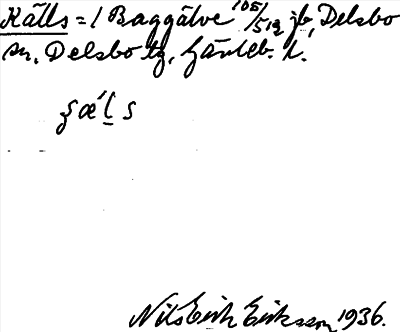 Källs = / Baggälve 105/512 jb, Delsbo
sn, Delsbo tg, Gävleb. l.
ʂæ´l̲ s
Nils Erik Eriksson 1936.